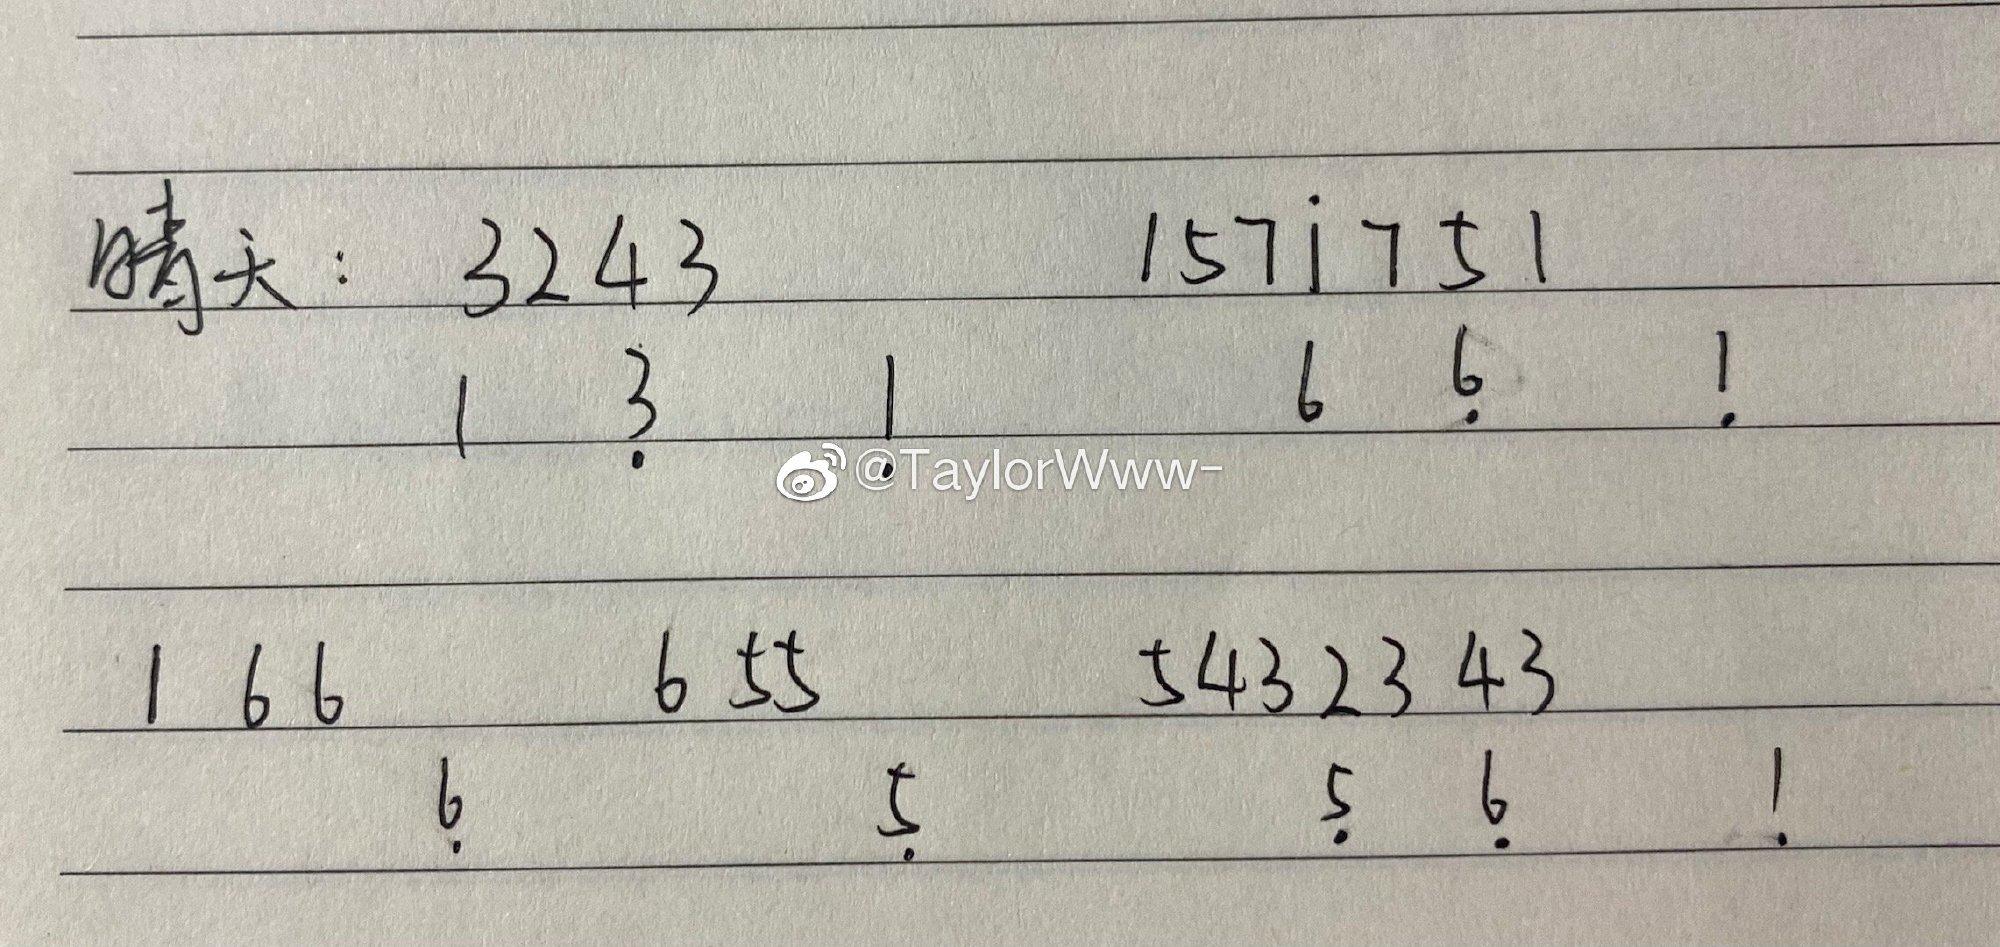 晴天: 3243 1571̇751
1 3̣ 1̣ 6 6̣ 1̣
@TaylorWww-
1 6 6 6 5 5 5 4 3 2 3 4 3
6̣ 5̣ 5̣ 6̣ 1̣